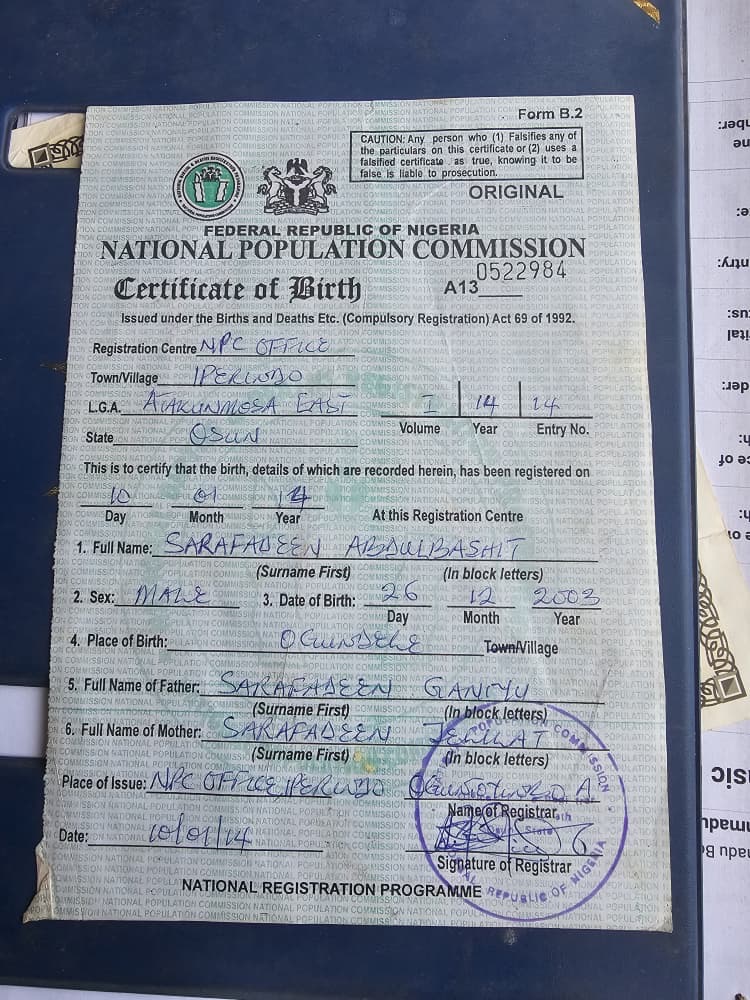 Form B.2
CAUTION: Any person who (1) Falsifies any of
the particulars on this certificate or (2) uses a
falsified certificate as true, knowing it to be
false is liable to prosecution.
ORIGINAL
FEDERAL REPUBLIC OF NIGERIA
NATIONAL POPULATION COMMISSION
Certificate of Birth A13 0522984
Issued under the Births and Deaths Etc. (Compulsory Registration) Act 69 of 1992.
Registration Centre NPC OFFICE
Town/Village IPERINDO
L.G.A. ATAKUNMOSA EAST I 14 14
Volume Year Entry No.
State OSUN
This is to certify that the birth, details of which are recorded herein, has been registered on
10 01 14
Day Month Year At this Registration Centre
1. Full Name: SARAFADEEN ABDULBASHIT
(Surname First) (In block letters)
2. Sex: MALE 3. Date of Birth: 26 12 2003
Day Month Year
4. Place of Birth: OGUNDELE Town/Village
5. Full Name of Father: SARAFADEEN GANIYU
(Surname First) (In block letters)
6. Full Name of Mother: SARAFADEEN
(Surname First) (In block letters)
Place of Issue: NPC OFFICE, IPERINDO
Name of Registrar
Date: 10/01/14
Signature of Registrar
NATIONAL REGISTRATION PROGRAMME
COMMISSION
REPUBLIC OF NIGERIA